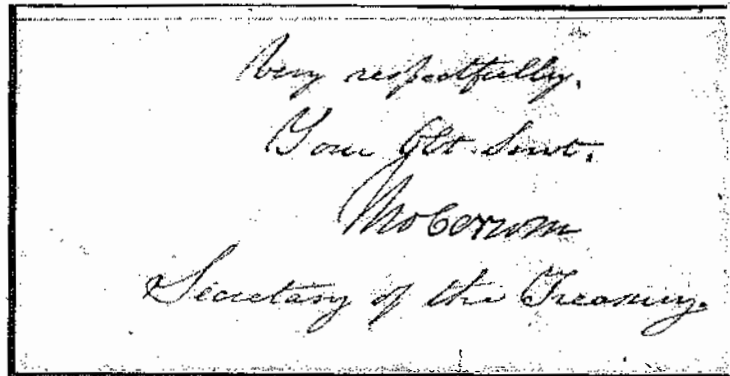 Very respectfully,
Your Obt. Servt.
Tho Corwin
Secretary of the Treasury.